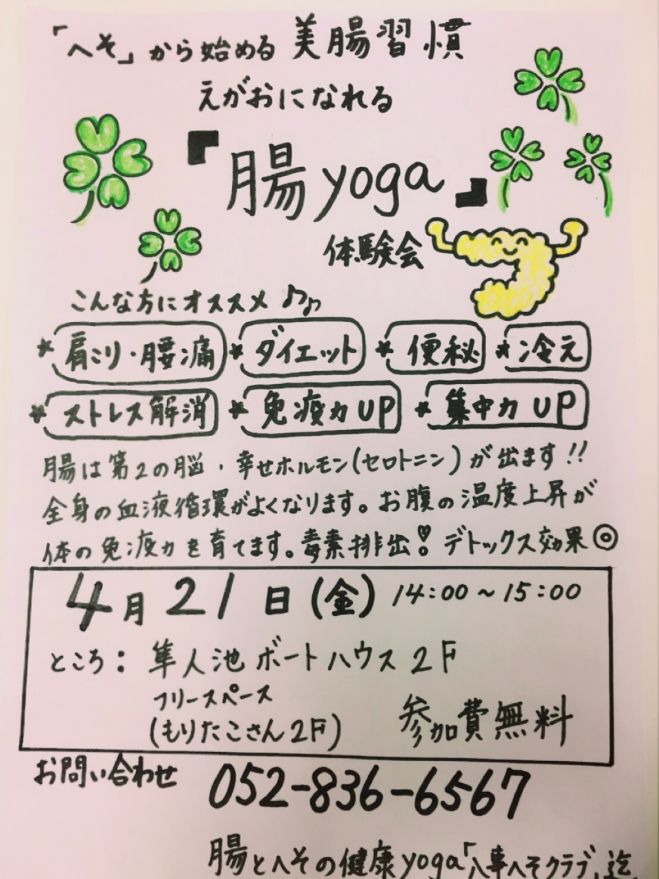 「へそ」から始める 美腸習慣
えがおになれる
『腸yoga』
体験会
こんな方にオススメ♪♪
* 肩こり・腰痛 * ダイエット * 便秘 * 冷え
* ストレス解消 * 免疫力UP * 集中力UP
腸は第2の脳・幸せホルモン(セロトニン)が出ます!!
全身の血液循環がよくなります。お腹の温度上昇が
体の免疫力を育てます。毒素排出! デトックス効果◎
4月21日(金) 14:00~15:00
ところ: 隼人池ボートハウス2F
フリースペース
(もりたこさん2F) 参加費無料
お問い合わせ 052-836-6567
腸とへその健康yoga「八事へそクラブ」迄